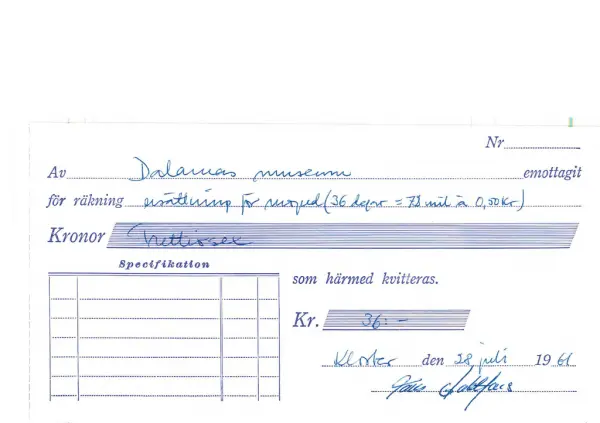 Nr
Av Dalarnas museum emottagit
för räkning ersättning för moped (36 dagar = 78 mil à 0,50 kr)
Kronor Trettiosex
Specifikation
som härmed kvitteras.
Kr. 36:-
Kloster den 28 juli 1961